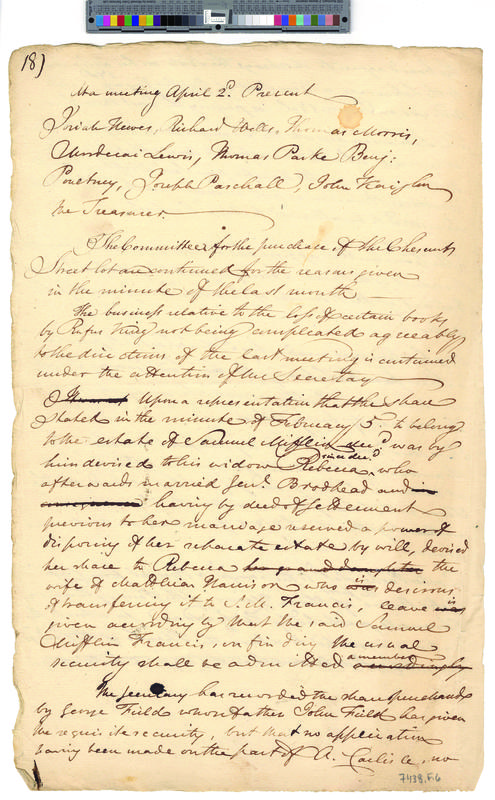 18)
At a meeting April 2d. Present
Josiah Hewes, Richard Wells, Thomas Morris,
Mordecai Lewis, Thomas Parke Benj:
Poultney, Joseph Paschall, John Kaighn
the Treasurer.
The Committee for the purchase of the Chesnut
Street lot are continued for the reasons given
in the minute of the last month
The business relative to the loss of certain books
by Rufus King not being complicated agreeably
to the directions of the last meeting is continued
under the attention of the Secretary
Upon a representation that the share
stated in the minute of February 5. to belong
to the estate of Samuel Mifflin decd. was by
him devised to his widow Rebecca since decd. who
afterwards married Genl. Brodhead and in
consequence having by deed of settlement
previous to her marriage reserved a power of
disposing of her separate estate by will, devised
her share to Rebecca her grand daughter the
wife of Matthias Harrison who is desirous
of transferring it to S. M. Francis, leave is
given accordingly that the said Samuel
Mifflin Francis, on finding the usual
security shall be admitted a member accordingly
The Secretary has recorded the share purchased
by George Field whose father John Field has given
the requisite security, but that no application
having been made on the part of A. Carlisle, no
7439.F.6